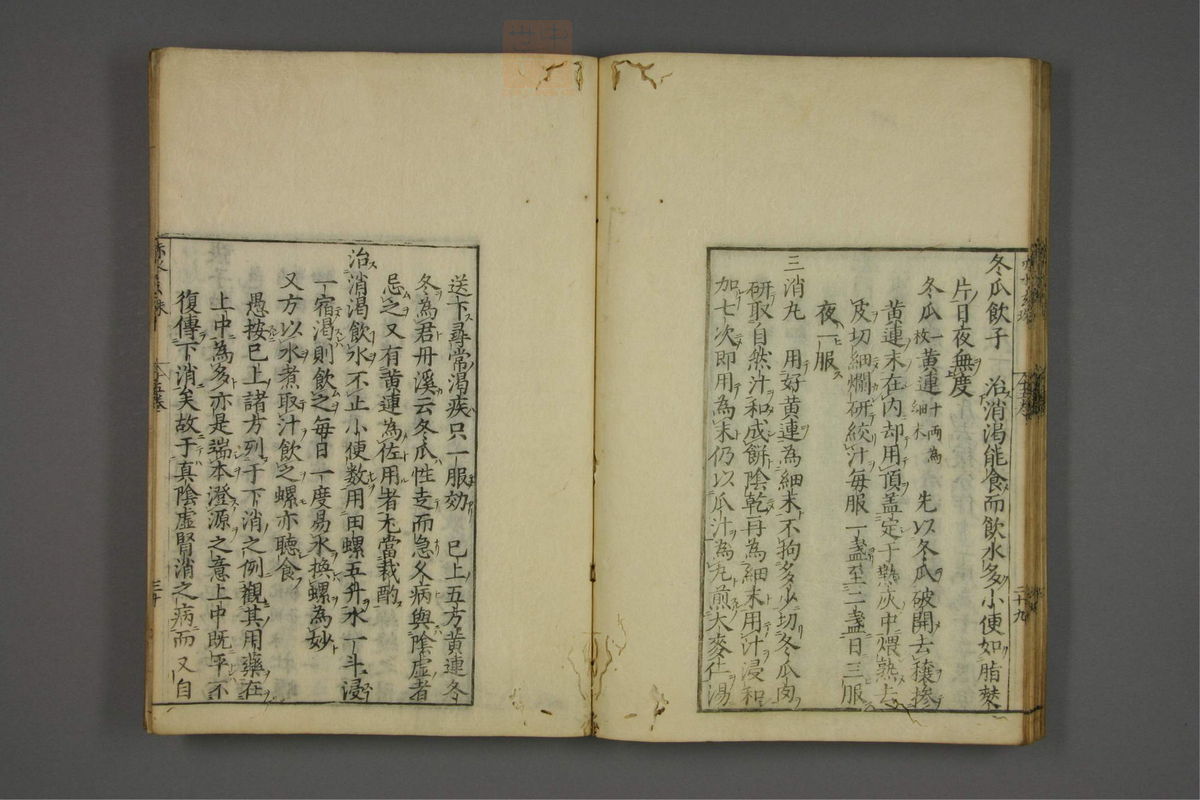 冬瓜飲子　治消渴能食而飲水多小便如脂麩
片日夜無度
冬瓜一枚黃連十両為細末　先以冬瓜破開去穣摻
黃連末在內却用頂盖定于熱灰中煨熟去
皮切細爛研絞汁每服一盞至二盞日三服
夜一服
三消丸　用好黃連為細末不拘多少切冬瓜肉
研取自然汁和成餅陰乾再為細末用汁浸和
加七次即用為末仍以瓜汁為丸煎大麥仁湯
二十九
送下尋常渴疾只一服効　已上五方黃連冬
冬為君丹溪云冬瓜性走而急久病與陰虛者
忌之又有黃連為佐用者尤當裁酌
治消渴飲水不止小便数用田螺五升水一斗浸
一宿渴則飲之每日一度易水換螺為妙
又方以水煮取汁飲之螺亦聽食
愚按已上諸方列于下消之例觀其用藥在
上中為多亦是端本澄源之意上中既平不
復傳下消矣故于真陰虛腎消之病而又自
三十